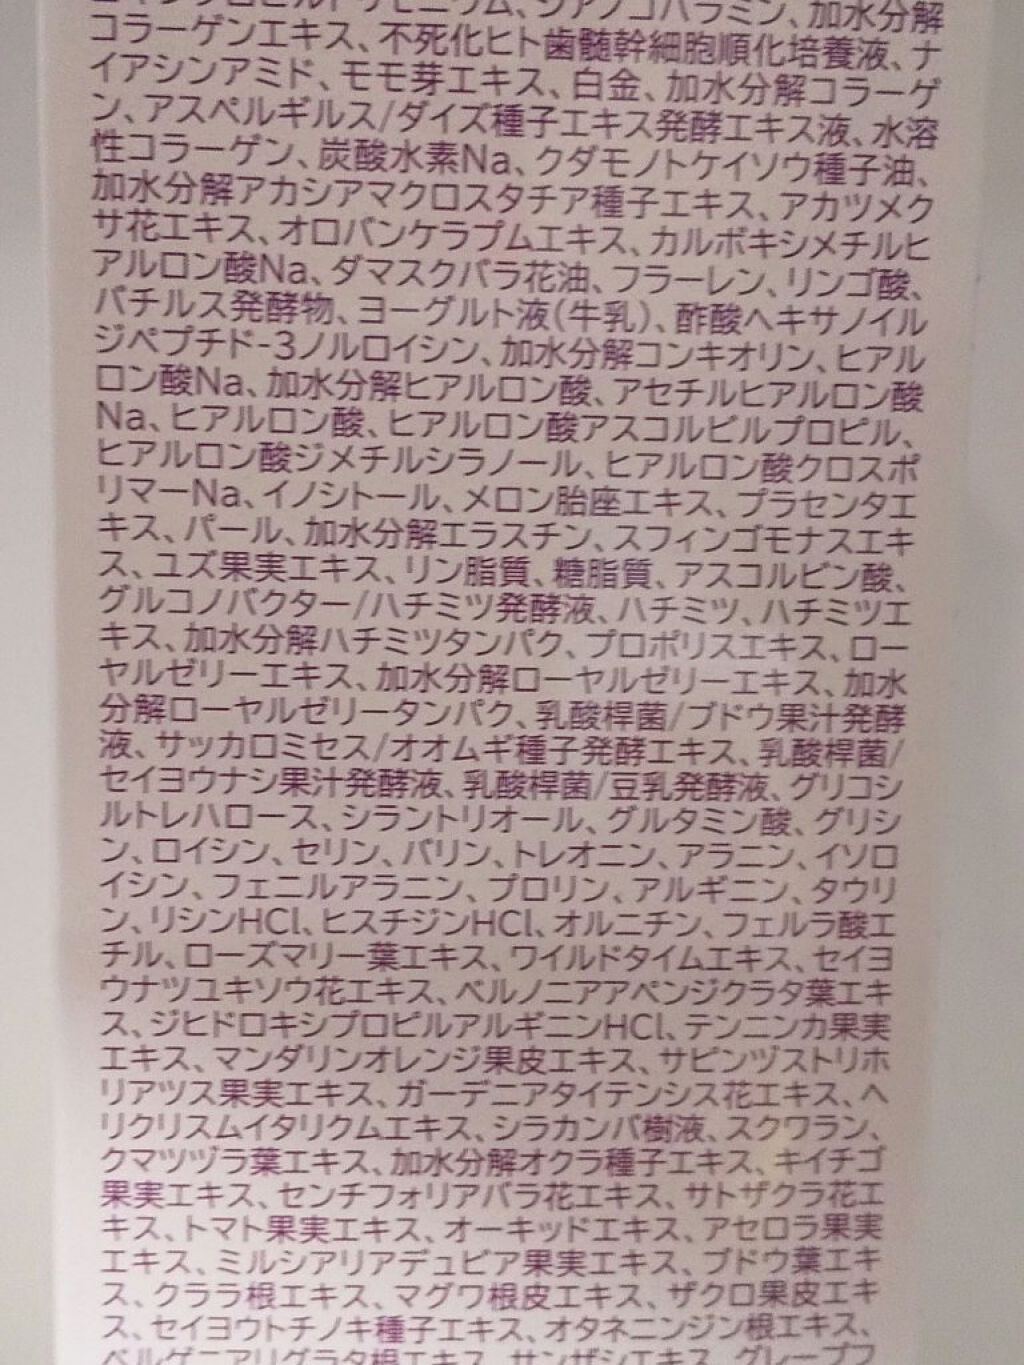 シアノコバラミン、加水分解
コラーゲンエキス、不死化ヒト歯髄幹細胞順化培養液、ナ
イアシンアミド、モモ芽エキス、白金、加水分解コラーゲ
ン、アスペルギルス/ダイズ種子エキス発酵エキス液、水溶
性コラーゲン、炭酸水素Na、クダモノトケイソウ種子油、
加水分解アカシアマクロスタチア種子エキス、アカツメク
サ花エキス、オロバンケラプムエキス、カルボキシメチルヒ
アルロン酸Na、ダマスクバラ花油、フラーレン、リンゴ酸、
バチルス発酵物、ヨーグルト液(牛乳)、酢酸ヘキサノイル
ジペプチド-3ノルロイシン、加水分解コンキオリン、ヒアル
ロン酸Na、加水分解ヒアルロン酸、アセチルヒアルロン酸
Na、ヒアルロン酸、ヒアルロン酸アスコルビルプロピル、
ヒアルロン酸ジメチルシラノール、ヒアルロン酸クロスポ
リマーNa、イノシトール、メロン胎座エキス、プラセンタエ
キス、パール、加水分解エラスチン、スフィンゴモナスエキ
ス、ユズ果実エキス、リン脂質、糖脂質、アスコルビン酸、
グルコノバクター/ハチミツ発酵液、ハチミツ、ハチミツエ
キス、加水分解ハチミツタンパク、プロポリスエキス、ロー
ヤルゼリーエキス、加水分解ローヤルゼリーエキス、加水
分解ローヤルゼリータンパク、乳酸桿菌/ブドウ果汁発酵
液、サッカロミセス/オオムギ種子発酵エキス、乳酸桿菌/
セイヨウナシ果汁発酵液、乳酸桿菌/豆乳発酵液、グリコシ
ルトレハロース、シラントリオール、グルタミン酸、グリシ
ン、ロイシン、セリン、バリン、トレオニン、アラニン、イソロ
イシン、フェニルアラニン、プロリン、アルギニン、タウリ
ン、リシンHCl、ヒスチジンHCl、オルニチン、フェルラ酸エ
チル、ローズマリー葉エキス、ワイルドタイムエキス、セイヨ
ウナツユキソウ花エキス、ベルノニアアペンジクラタ葉エキ
ス、ジヒドロキシプロピルアルギニンHCl、テンニンカ果実
エキス、マンダリンオレンジ果皮エキス、サピンヅストリホ
リアツス果実エキス、ガーデニアタイテンシス花エキス、ヘ
リクリスムイタリクムエキス、シラカンバ樹液、スクワラン、
クマツヅラ葉エキス、加水分解オクラ種子エキス、キイチゴ
果実エキス、センチフォリアバラ花エキス、サトザクラ花エ
キス、トマト果実エキス、オーキッドエキス、アセロラ果実
エキス、ミルシアリアデュビア果実エキス、ブドウ葉エキ
ス、クララ根エキス、マグワ根皮エキス、ザクロ果皮エキ
ス、セイヨウトチノキ種子エキス、オタネニンジン根エキス、
ベルゲニアリグラタ根エキス、サンザシエキス、グレープフ